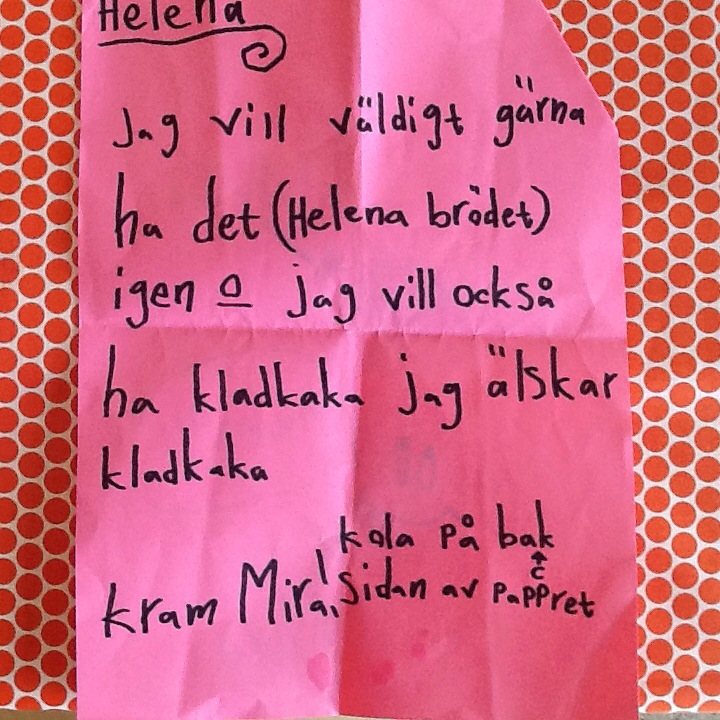 Helena
Jag vill väldigt gärna
ha det (Helena brödet)
igen o jag vill också
ha kladkaka jag älskar
kladkaka
kola på bak
c
sidan av pappret
kram Mira!